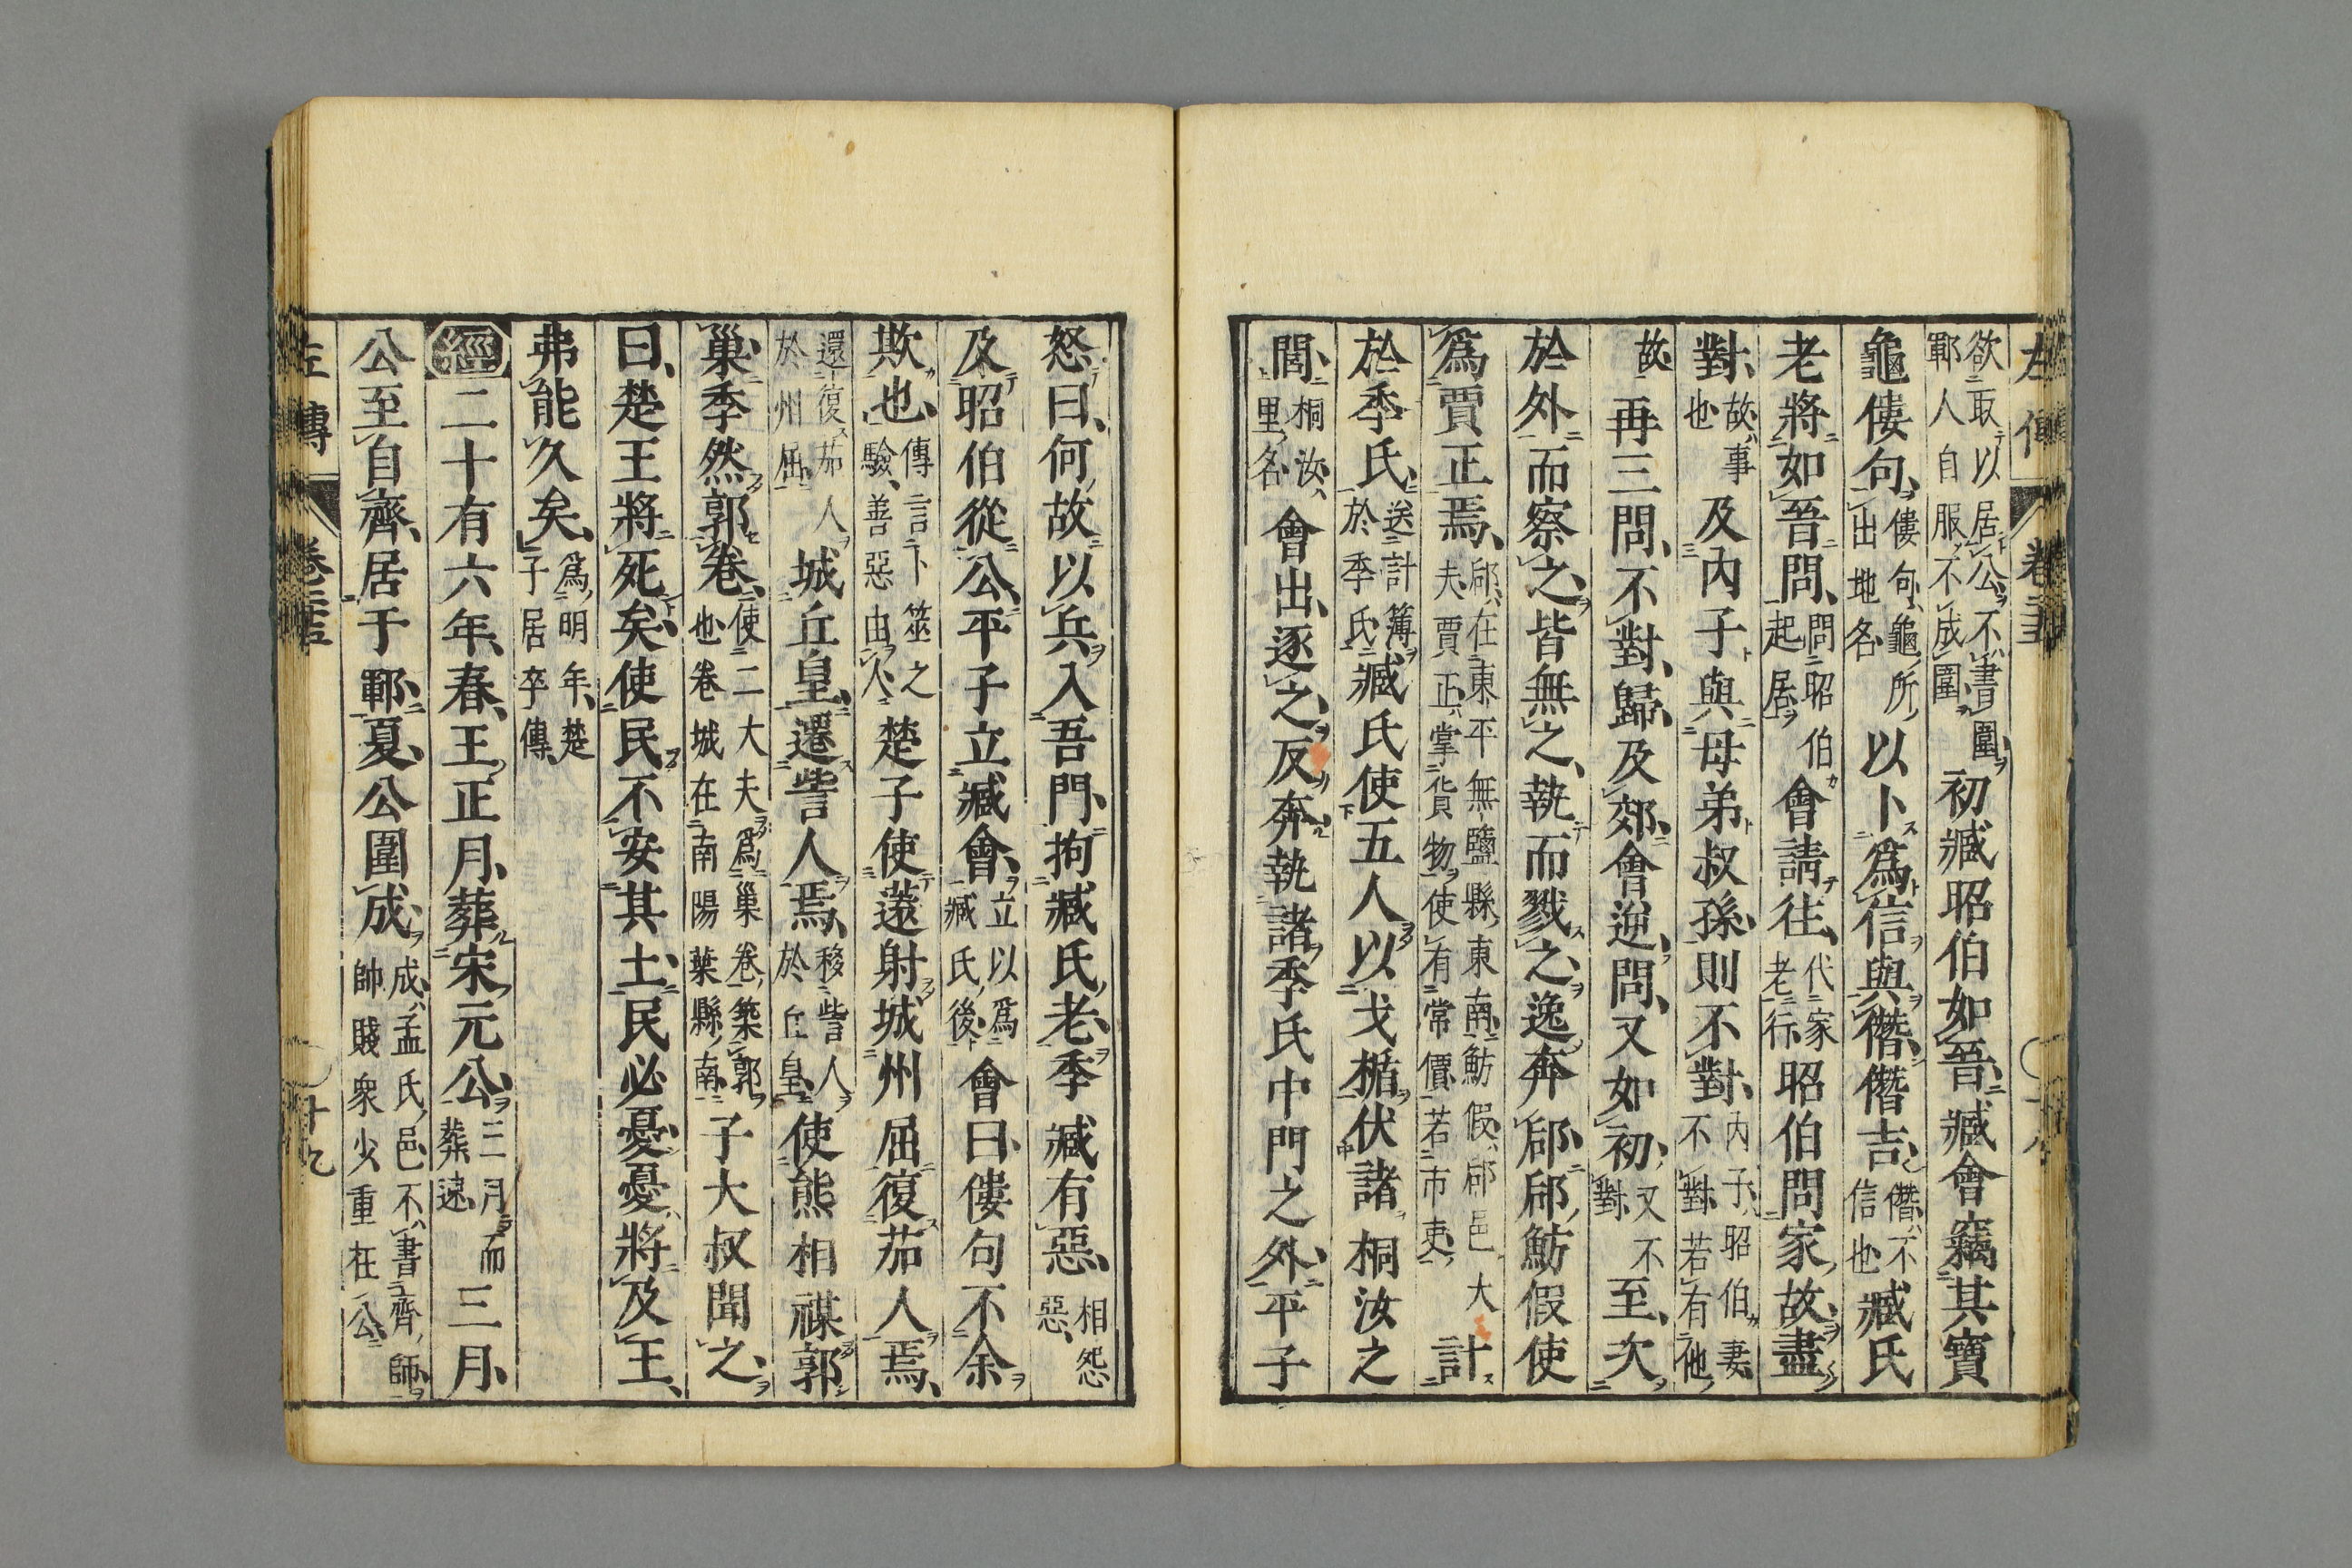 欲取以居公不書圍鄆人自服不成圍初臧昭伯如晉臧會竊其寶
龜僂句僂句龜所出地名以卜爲信與僭僭吉僭不信也臧氏
老將如晉問問昭伯起居會請往代家老行昭伯問家故盡
對故事也及內子與母弟叔孫則不對內子昭伯妻不對若有他
故再三問不對歸及郊會逆問又如初又不對至次
於外而察之皆無之執而戮之逸奔郈郈魴假使
爲賈正焉郈在東平無鹽縣東南魴假郈邑大夫賈正掌貨物使有常價若市吏計
於季氏送計簿於季氏臧氏使五人以戈楯伏諸桐汝之
閭桐汝里名會出逐之反奔執諸季氏中門之外平子
怒曰何故以兵入吾門拘臧氏老季臧有惡相怨惡
及昭伯從公平子立臧會立以爲臧氏後會曰僂句不余
欺也傳言卜筮之驗善惡由人楚子使薳射城州屈復茄人焉
還復茄人於州屈城丘皇遷訾人焉移訾人於丘皇使熊相禖郭
巢季然郭卷使二大夫爲巢卷築郭也卷城在南陽葉縣南子大叔聞之
曰楚王將死矣使民不安其土民必憂憂將及王
弗能久矣爲明年楚子居卒傳
經二十有六年春王正月葬宋元公三月而葬速三月
公至自齊居于鄆夏公圍成成孟氏邑不書齊師帥賤衆少重在公
左傳 卷二十五 十九